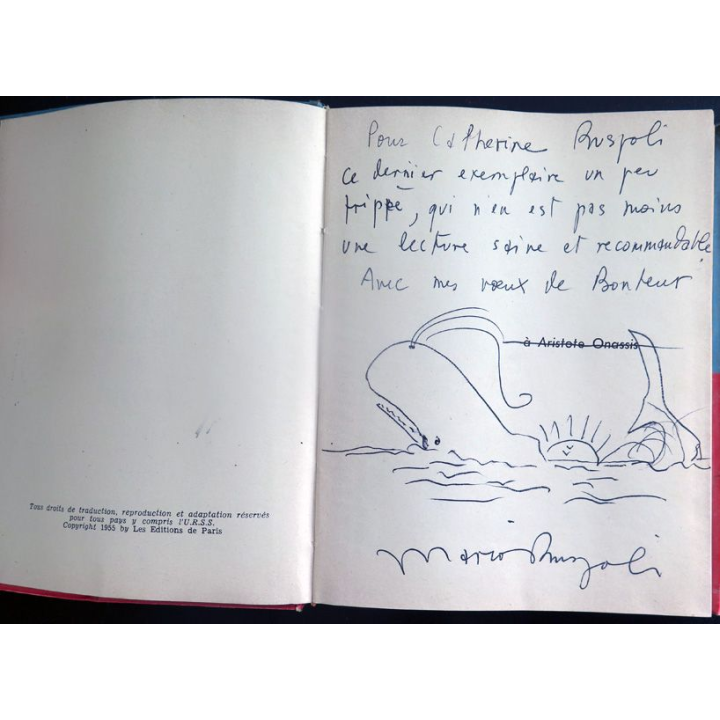 Tous droits de traduction, reproduction et adaptation réservés
pour tous pays y compris l'U.R.S.S.
Copyright 1955 by Les Editions de Paris
Pour Catherine Ruspoli
ce dernier exemplaire un peu
frippé, qui n'en est pas moins
une lecture saine et recommandable.
Avec mes vœux de Bonheur
à Aristote Onassis
Mario Ruspoli